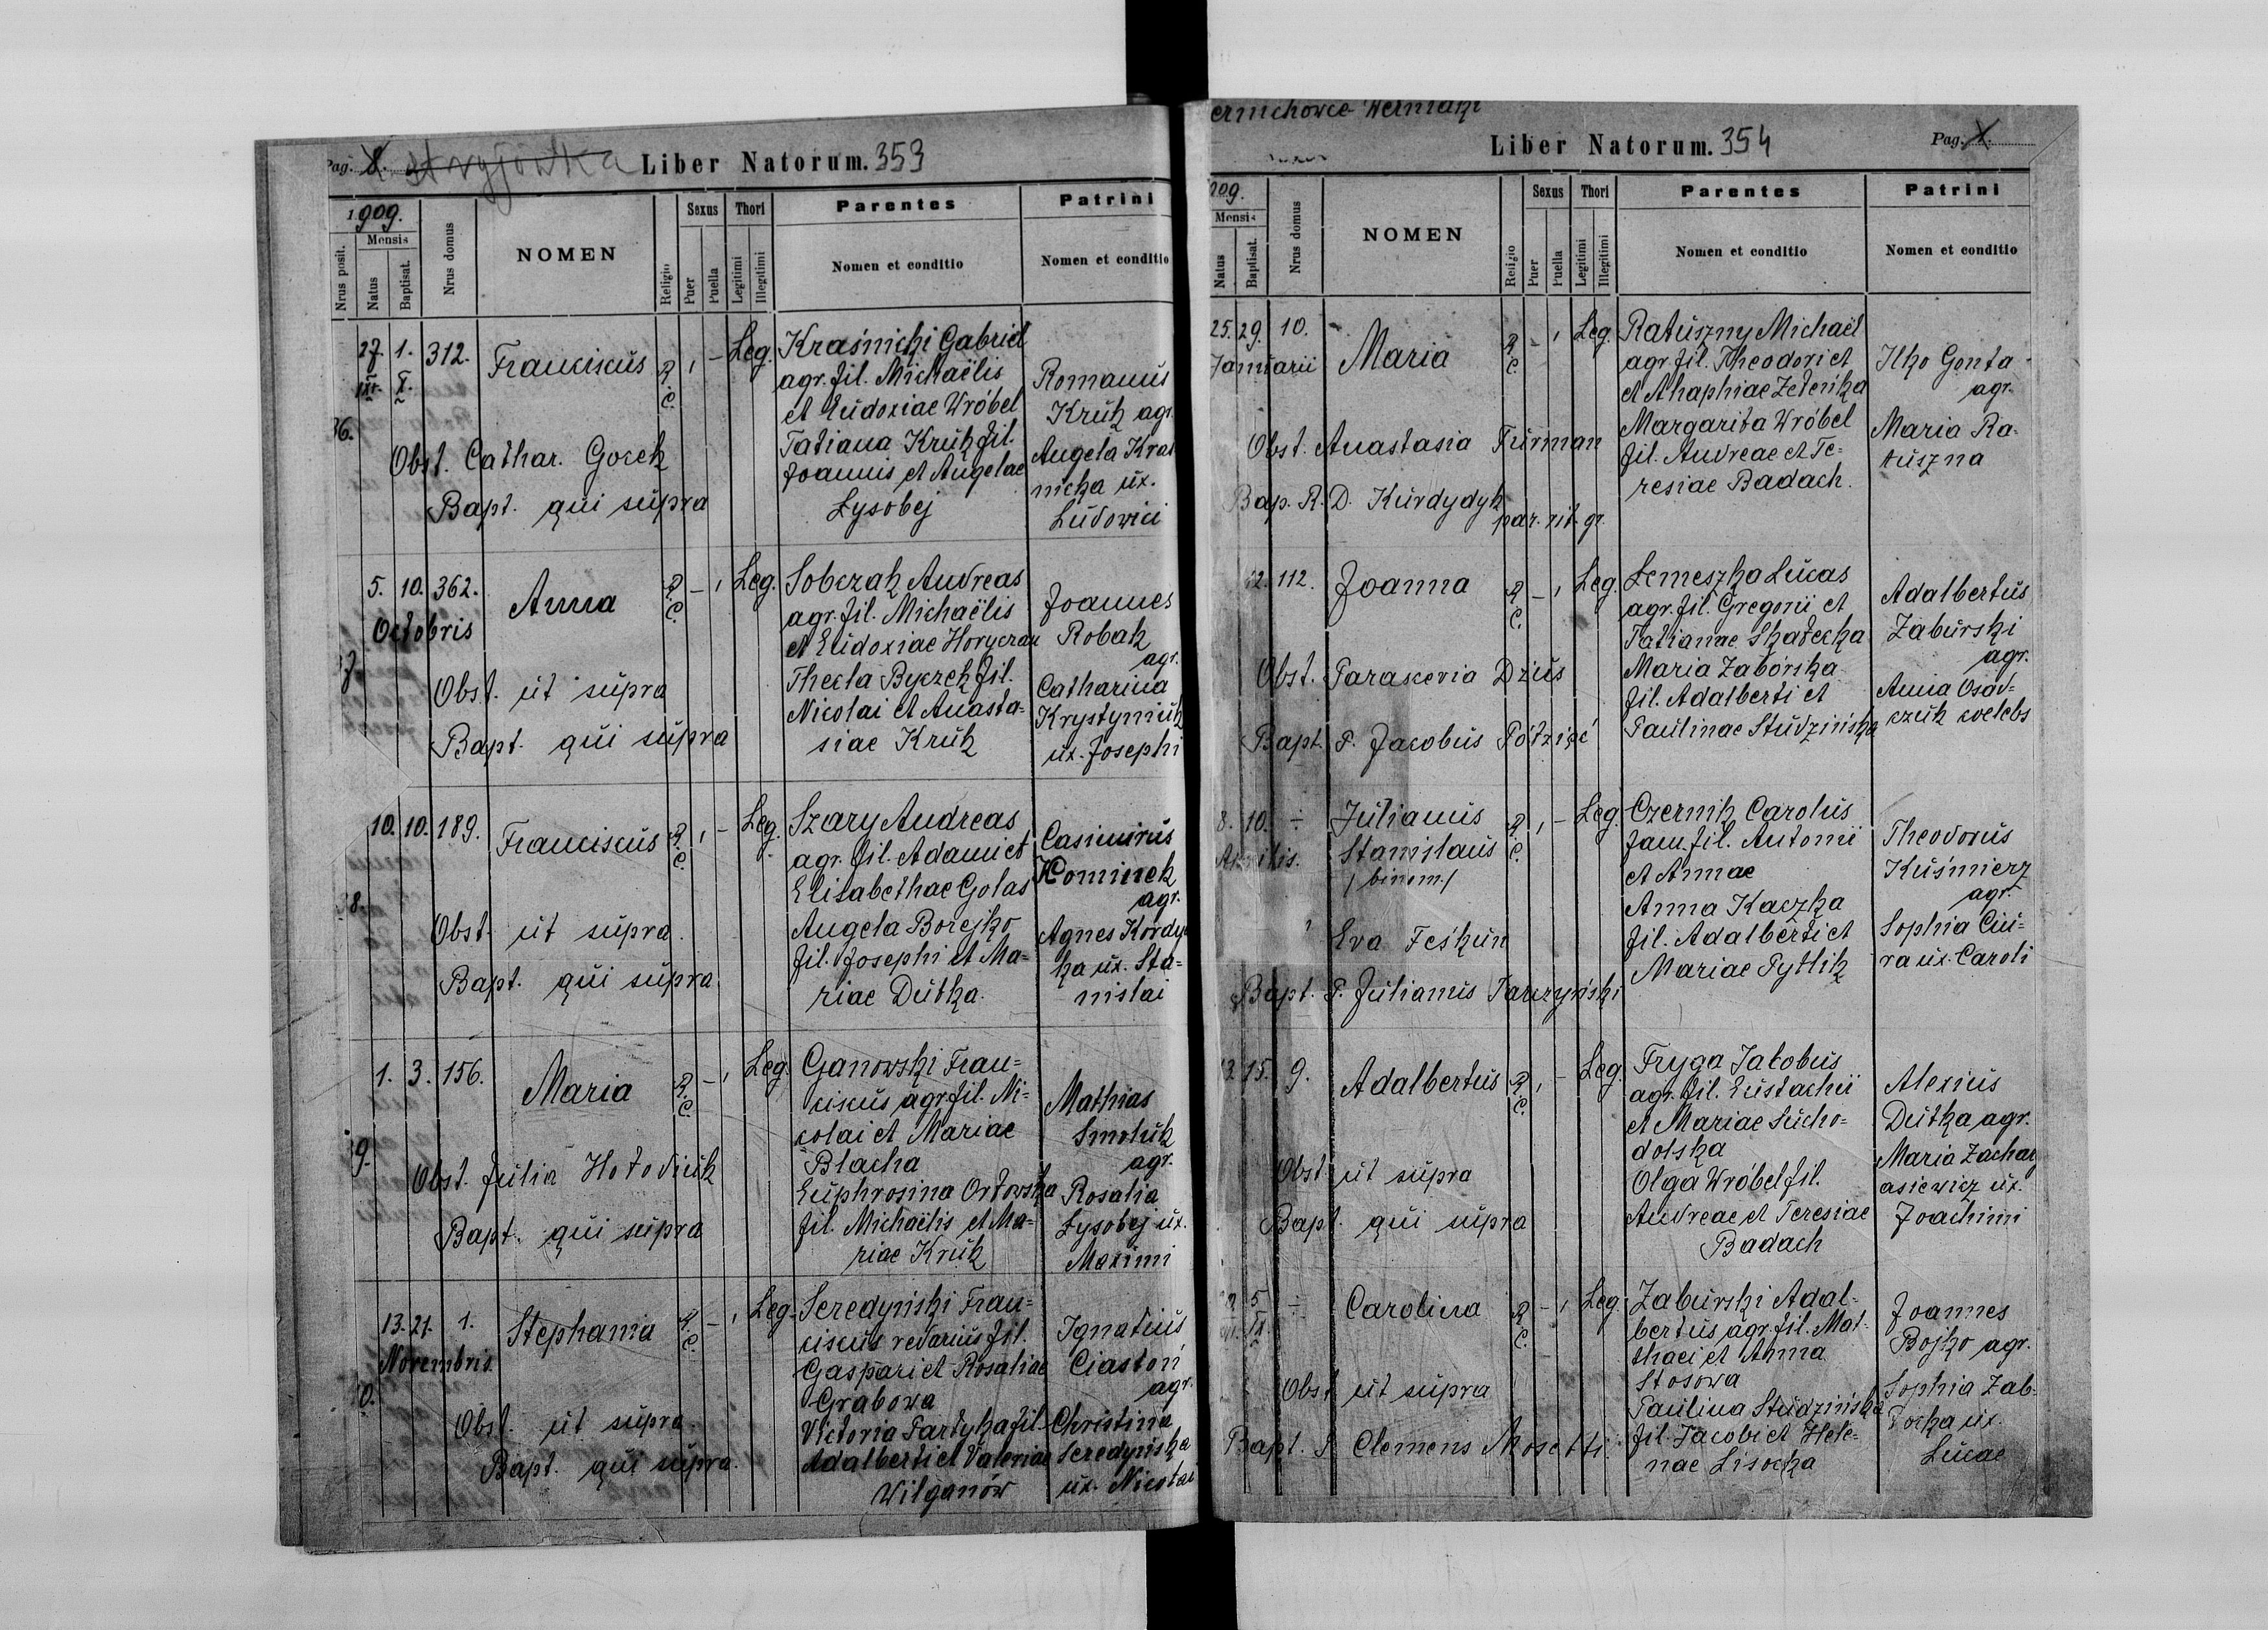 Pag. 8. Stryjówka Liber Natorum. 353
1909.
Nrus posit.
Mensis
Natus
Baptisat.
Nrus domus
NOMEN
Religio
Sexus
Puer
Puella
Thori
Legitimi
Illegitimi
Parentes
Nomen et conditio
Patrini
Nomen et conditio
36.
27. 1. 312.
IX. X.
Franciscus
R.
C.
Leg.
Kraśnicki Gabriel
agr. fil. Michaëlis
et Eudoxiae Wróbel
Tatiana Kruk fil.
Joannis et Angelae
Łysobej
Romanus
Kruk agr.
Angela Kraś
nicka ux.
Ludovici
Obst. Cathar. Gocek
Bapt. qui supra
5. 10. 362.
Octobris
Anna
R.
C.
Leg.
Sobczak Andreas
agr. fil. Michaëlis
et Eudoxiae Horyczau
Thecla Byczek fil.
Nicolai et Anasta=
siae Kruk
Joannes
Robak
agr.
Catharina
Krystyniuk
ux. Josephi
Obst. ut supra
Bapt. qui supra
10. 10. 189.
Franciscus
R.
C.
Leg.
Szary Andreas
agr. fil. Adami et
Elisabethae Golas
Angela Borejko
fil. Josephi et Ma=
riae Dutka.
Casimirus
Kominek
agr.
Agnes Kordy
ka ux. Sta=
nislai
Obst. ut supra.
Bapt. qui supra
1. 3. 156.
Maria
R.
C.
Leg.
Ganowski Fran=
ciscus agr. fil. Ni=
colai et Mariae
Blacha
Euphrosina Orłowska
fil. Michaëlis et Ma=
riae Kruk
Mathias
Smoluk
agr.
Rosalia
Łysobej ux.
Maximi
Obst. Julia Hołodiuk
Bapt. qui supra
13. 21. 1.
Novembris
Stephania
R.
C.
Leg.
Seredyński Fran=
ciscus redarius fil.
Gaspari et Rosaliae
Grabowa
Victoria Partyka fil.
Adalberti et Valeriae
Wilganów
Ignatius
Ciastoń
agr.
Christina
Seredyńska
ux. Nicolai
Obst. ut supra.
Bapt. qui supra.
ernichowce Werniaki
Liber Natorum. 354
Pag.
1909.
Mensis
Natus
Baptisat.
Nrus domus
NOMEN
Religio
Sexus
Puer
Puella
Thori
Legitimi
Illegitimi
Parentes
Nomen et conditio
Patrini
Nomen et conditio
25. 29. 10.
Januarii
Maria
R.
C.
Leg.
Ratuszny Michaël
agr. fil. Theodori et
et Ahaphiae Zeleńka
Margarita Wróbel
fil. Andreae et Te=
resiae Badach.
Ilko Gonta
agr.
Maria Ra=
tuszna
Obst. Anastasia Furman
Bap. R. D. Kurdydyk
par. rit. gr.
112.
Joanna
R.
C.
Leg.
Lemeszka Lucas
agr. fil. Gregorii et
Tatianae Skałecka
Maria Zabórska
fil. Adalberti et
Paulinae Studzińska
Adalbertus
Zaburski
agr.
Anna Osad=
czuk coelebs
Obst. Parascevia Dzius
Bapt. P. Jacobus Półzięć
8. 10. ÷
Aprilis.
Julianus
Stanislaus
/binom./
R.
C.
Leg.
Czernik Carolus
fam. fil. Antonii
et Annae
Anna Kaczka
fil. Adalberti et
Mariae Pytlik
Theodorus
Kuśmierz
agr.
Sophia Ciu=
ra ux. Caroli
Eva Feśkun
Bapt. P. Julianus Tarczyński
15. 9.
Adalbertus
R.
C.
Leg.
Fryga Jacobus
agr. fil. Eustachii
et Mariae Sucho=
dolska
Olga Wróbel fil.
Andreae et Teresiae
Badach
Alexius
Dutka agr.
Maria Zachary
asiewicz ux.
Joachimi
Obst. ut supra
Bapt. qui supra
5 ÷
Carolina
R.
C.
Leg.
Zaburski Adal=
bertus agr. fil. Mat=
thaei et Anna
Stosowa
Paulina Studzińska
fil. Jacobi et Hele=
nae Lisocka
Joannes
Bojko agr.
Sophia Zab=
łocka ux.
Lucae
Obst. ut supra
Bapt. P. Clemens Mosetti